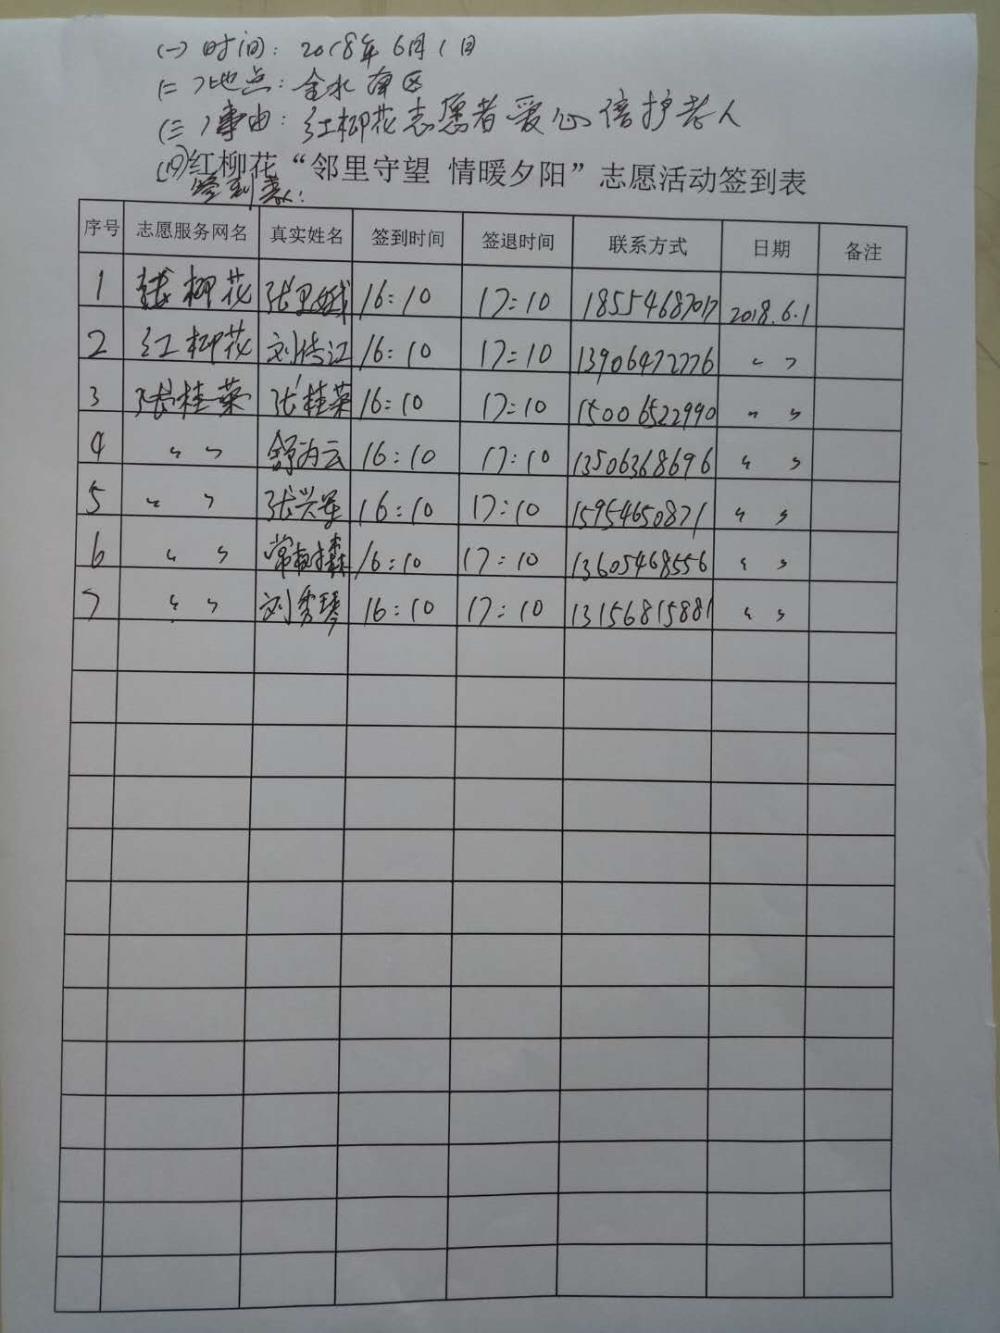 (一)时间：2018年6月1日
(二)地点：金水南区
(三)事由：红柳花志愿者爱心陪护老人
(四)红柳花“邻里守望 情暖夕阳”志愿活动签到表
签到表：
序号 志愿服务网名 真实姓名 签到时间 签退时间 联系方式 日期 备注
1 柳花 张 16:10 17:10 18554687017 2018.6.1
2 红柳花 刘传江 16:10 17:10 13906472776 〃
3 张桂荣 张桂荣 16:10 17:10 15006522990 〃
4 〃 舒为云 16:10 17:10 13506368696 〃
5 〃 张兴军 16:10 17:10 15954650871 〃
6 〃 常 16:10 17:10 13605468556 〃
7 〃 刘秀琴 16:10 17:10 13156815881 〃